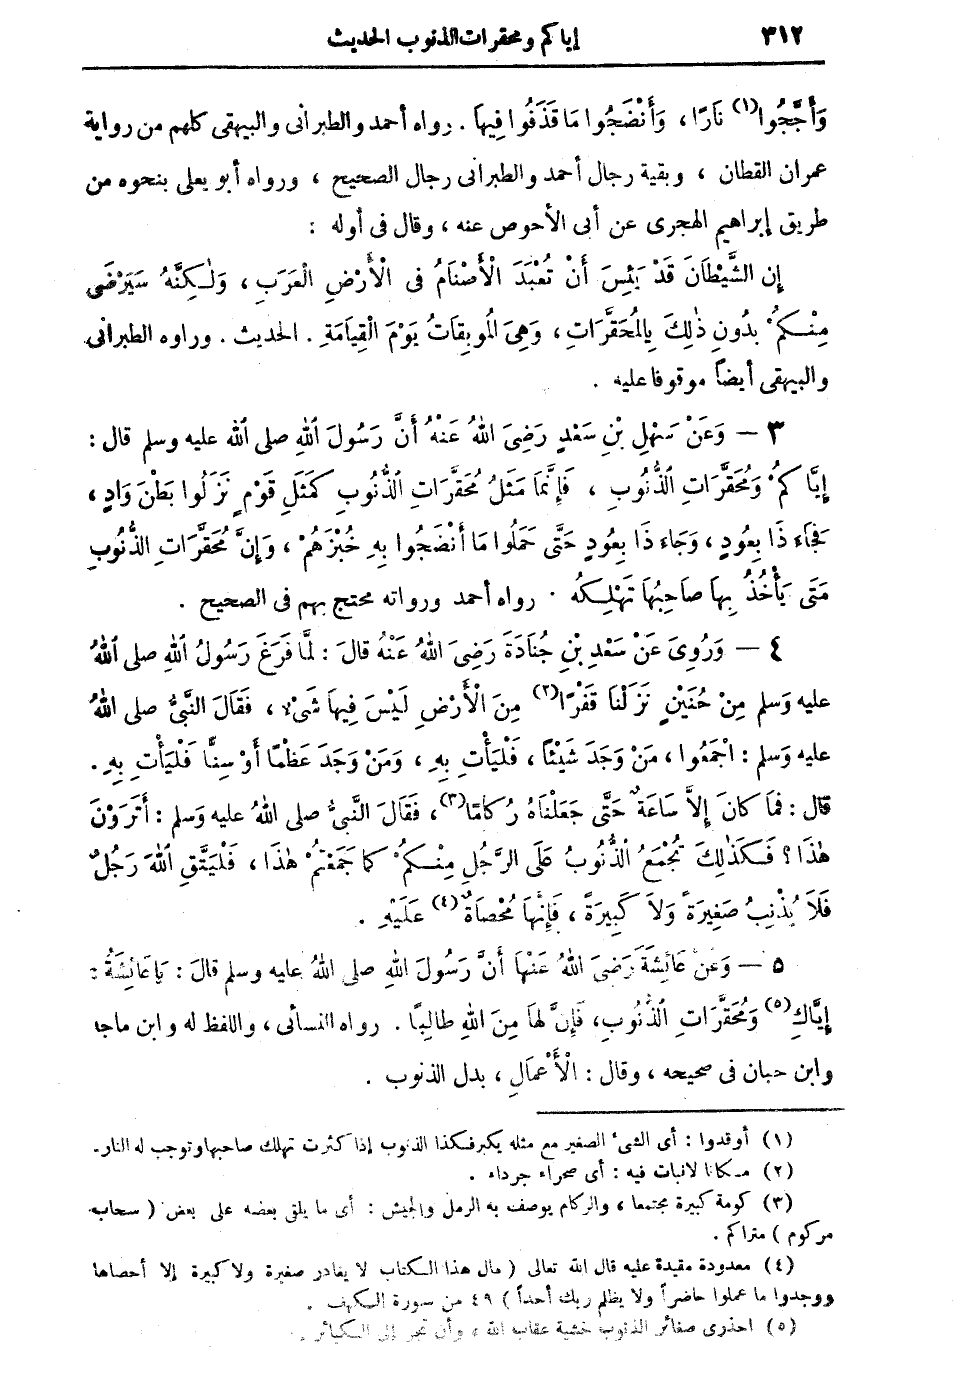 ٣١٢ إياكم ومحقرات الذنوب الحديث
وَأَجَّجُوا(١) نَارًا ، وَأَنْضَجُوا مَا قَذَفُوا فِيهَا . رواه أحمد والطبرانى والبيهقى كلهم من رواية
عمران القطان ، وبقية رجال أحمد والطبرانى رجال الصحيح ، ورواه أبو يعلى بنحوه من
طريق إبراهيم الهجرى عن أبى الأحوص عنه ، وقال فى أوله :
إن الشَّيْطَانَ قَدْ يَئِسَ أَنْ تُعْبَدَ الْأَصْنَامُ فى الْأَرْضِ الْعَرَبِ ، وَلَكِنَّهُ سَيَرْضَى
مِنْكُمْ بِدُونِ ذٰلِكَ بِالْمُحَقَّرَاتِ ، وَهِىَ الْمُوبِقَاتُ يَوْمَ الْقِيَامَةِ . الحديث . وراوه الطبرانى
والبيهقى أيضاً موقوفا عليه .
٣ — وَعَنْ سَهْلِ بْنِ سَعْدٍ رَضِىَ اللهُ عَنْهُ أَنَّ رَسُولَ اللهِ صلى الله عليه وسلم قال :
إِيَّاكُمْ وَمُحَقَّرَاتِ الذُّنُوبِ ، فَإِنَّمَا مَثَلُ مُحَقَّرَاتِ الذُّنُوبِ كَمَثَلِ قَوْمٍ نَزَلُوا بَطْنَ وَادٍ ،
فَجَاءَ ذَا بِعُودٍ ، وَجَاءَ ذَا بِعُودٍ حَتَّى حَمَلُوا مَا أَنْضَجُوا بِهِ خُبْزَهُمْ ، وَإِنَّ مُحَقَّرَاتِ الذُّنُوبِ
مَتَى يَأْخُذُ بِهَا صَاحِبُهَا تُهْلِكُهُ . رواه أحمد ورواته محتج بهم فى الصحيح .
٤ — وَرُوِىَ عَنْ سَعْدِ بْنِ جُنَادَةَ رَضِىَ اللهُ عَنْهُ قالَ : لَمَّا فَرَغَ رَسُولُ اللهِ صلى اللهُ
عليه وَسلم مِنْ حُنَيْنٍ نَزَلْنَا قَفْرًا(٢) مِنَ الْأَرْضِ لَيْسَ فِيهَا شَىْءٌ ، فَقَالَ النَّبِىُّ صلى اللهُ
عليه وَسلم : اجْمَعُوا ، مَنْ وَجَدَ شَيْئًا ، فَلْيَأْتِ بِهِ ، وَمَنْ وَجَدَ عَظْمًا أَوْ سِنًّا فَلْيَأْتِ بِهِ .
قالَ : فَمَا كَانَ إِلاَّ سَاعَةٌ حَتَّى جَعَلْنَاهُ رُكَامًا(٣) ، فَقَالَ النَّبِىُّ صلى اللهُ عليه وَسلم : أَتَرَوْنَ
هٰذَا ؟ فَكَذٰلِكَ تُجْمَعُ الذُّنُوبُ عَلَى الرَّجُلِ مِنْكُمْ كَمَا جَمَعْتُمْ هٰذَا ، فَلْيَتَّقِ اللهَ رَجُلٌ
فَلاَ يُذْنِبُ صَغِيرَةً وَلاَ كَبِيرَةً ، فَإِنَّهَا مُحْصَاةٌ(٤) عَلَيْهِ .
٥ — وَعَنْ عَائِشَةَ رَضِىَ اللهُ عَنْهَا أَنَّ رَسُولَ اللهِ صلى اللهُ عليه وسلم قالَ : يَا عَائِشَةُ :
إِيَّاكِ(٥) وَمُحَقَّرَاتِ الذُّنُوبِ ، فَإِنَّ لَهَا مِنَ اللهِ طَالِبًا . رواه النسائى ، واللفظ له وابن ماجا
وابن حبان فى صحيحه ، وقال : الْأَعْمَالِ ، بدل الذنوب .
(١) أوقدوا : أى الشىء الصغير مع مثله يكبر فكذا الذنوب إذا كثرت تهلك صاحبها وتوجب له النار .
(٢) مكانا لانبات فيه : أى صحراء جرداء .
(٣) كومة كبيرة مجتمعا ، والركام يوصف به الرمل والجيش : أى ما يلقى بعضه على بعض ( سحاب
مركوم ) متراكم .
(٤) معدودة مقيدة عليه قال الله تعالى ( مال هذا الكتاب لا يغادر صغيرة ولا كبيرة إلا أحصاها
ووجدوا ما عملوا حاضراً ولا يظلم ربك أحداً ) ٤٩ من سورة الكهف .
(٥) احذرى صغائر الذنوب خشية عقاب الله ، وأن تجر إلى الكبائر .